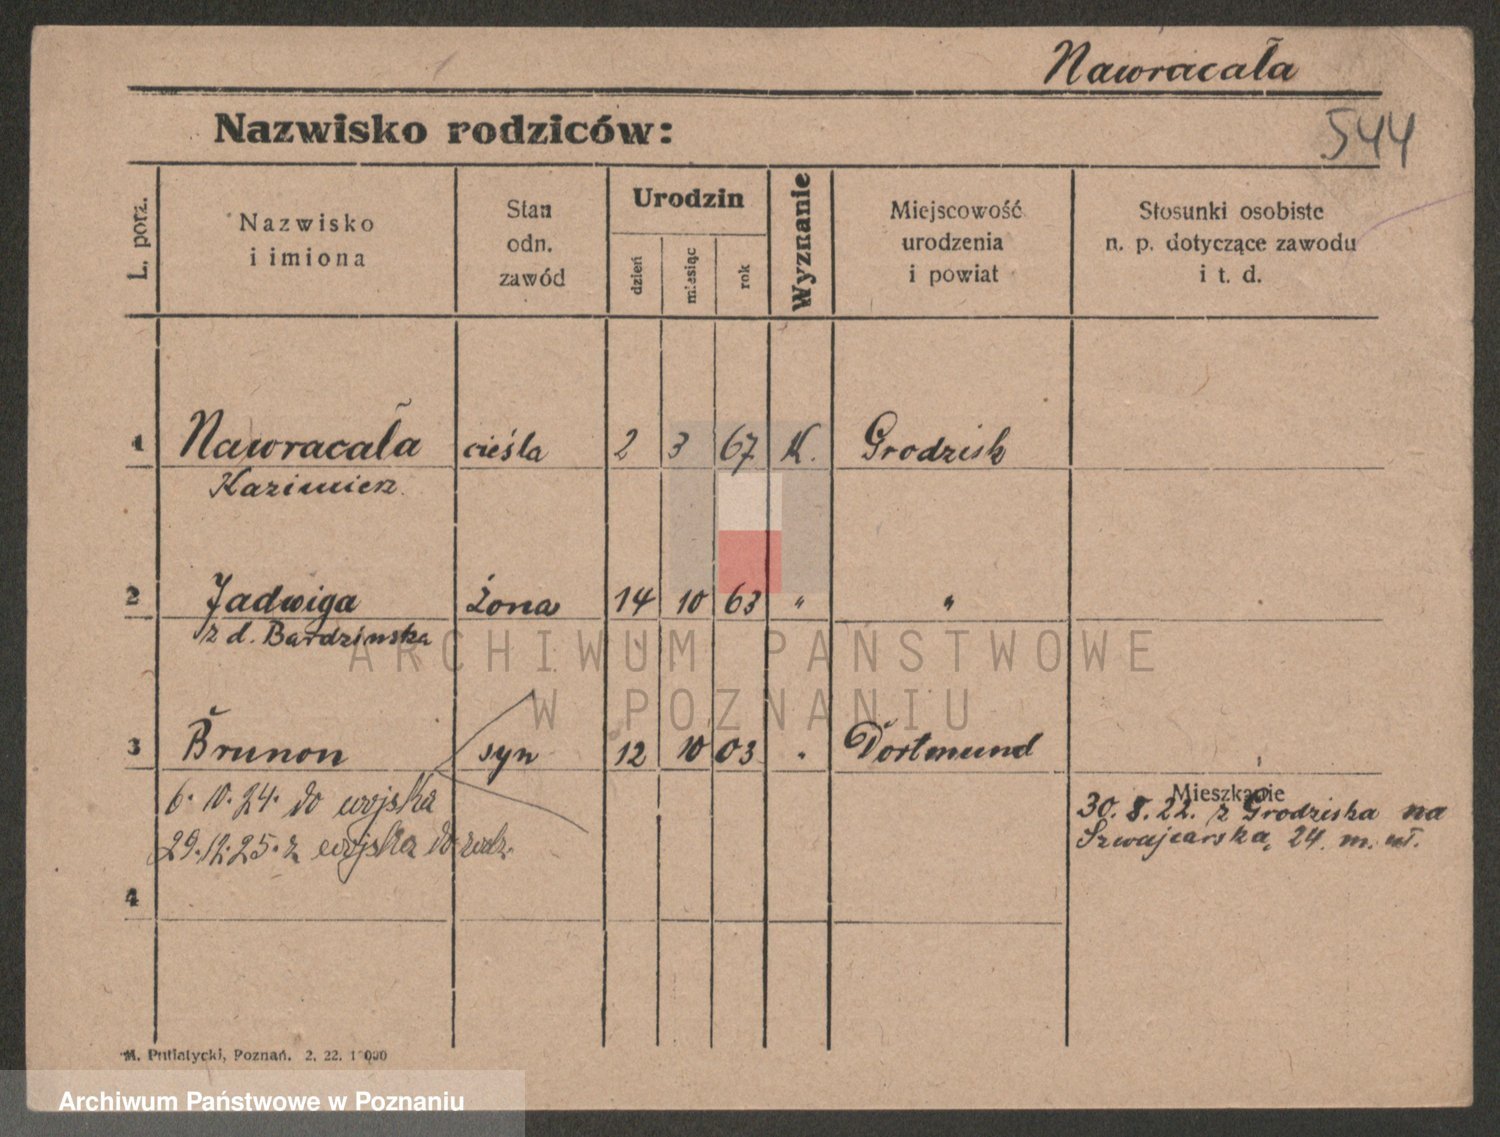 Nawracała
544
Nazwisko rodziców:
L. porz.
Nazwisko
i imiona
Stan
odn.
zawód
Urodzin
dzień
miesiąc
rok
Wyznanie
Miejscowość
urodzenia
i powiat
Stosunki osobiste
n. p. dotyczące zawodu
i t. d.
1 Nawracała cieśla 2 3 67 K. Grodzisk
Kazimierz
2 Jadwiga żona 14 10 63 " "
z d. Bardzinska
ARCHIWUM PAŃSTWOWE
W POZNANIU
3 Brunon syn 12 10 03 " Dortmund
6.10.24. do wojska
29.12.25. z wojska do rodz.
Mieszkanie
30.8.22. z Grodziska na
Szwajcarska, 24. m. wł.
4
M. Putiatycki, Poznań. 2. 22. 1 000
Archiwum Państwowe w Poznaniu